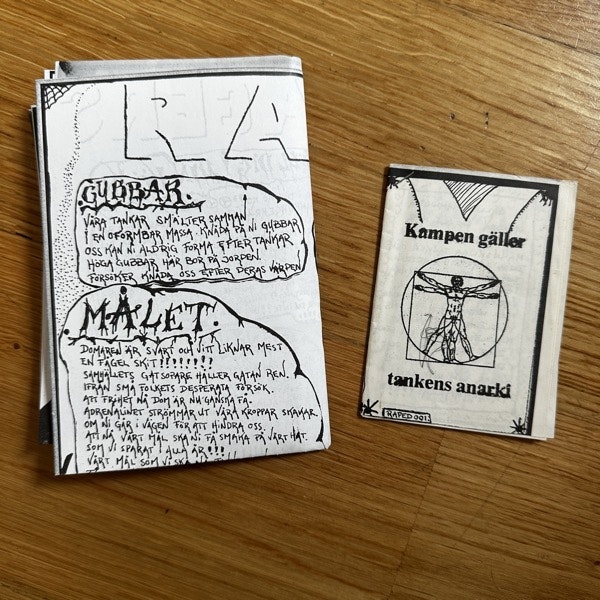 RA
.GUBBAR.
VÅRA TANKAR SMÄLTER SAMMAN
I EN OFORMBAR MASSA. KNÅDA PÅ NI GUBBAR
OSS KAN NI ALDRIG FORMA EFTER TANKAR
HÖGA GUBBAR HÄR BOR PÅ JORDEN.
FÖRSÖKER KNÅDA OSS EFTER DERAS VÄRDEN
.MÅLET.
DOMAREN ÄR SVART OCH VITT LIKNAR MEST
EN FÅGEL SKIT!!!!!!!!
SAMHÄLLETS GATSOPARE HÅLLER GATAN REN.
IFRÅN SMÅ FOLKETS DESPERATA FÖRSÖK.
ATT FRIHET NÅ DOM ÄR NU GANSKA FÅ.
ADRENALINET STRÖMMAR UT VÅRA KROPPAR SKAKAR.
OM NI GÅR I VÄGEN FÖR ATT HINDRA OSS.
ATT NÅ VÅRT MÅL SKA NI FÅ SMAKA PÅ VÅRT HAT.
SOM VI SPARAT I ALLA ÅR!!!
VÅRT MÅL SOM VI SKA
Kampen gäller
tankens anarki
RAPED 001.